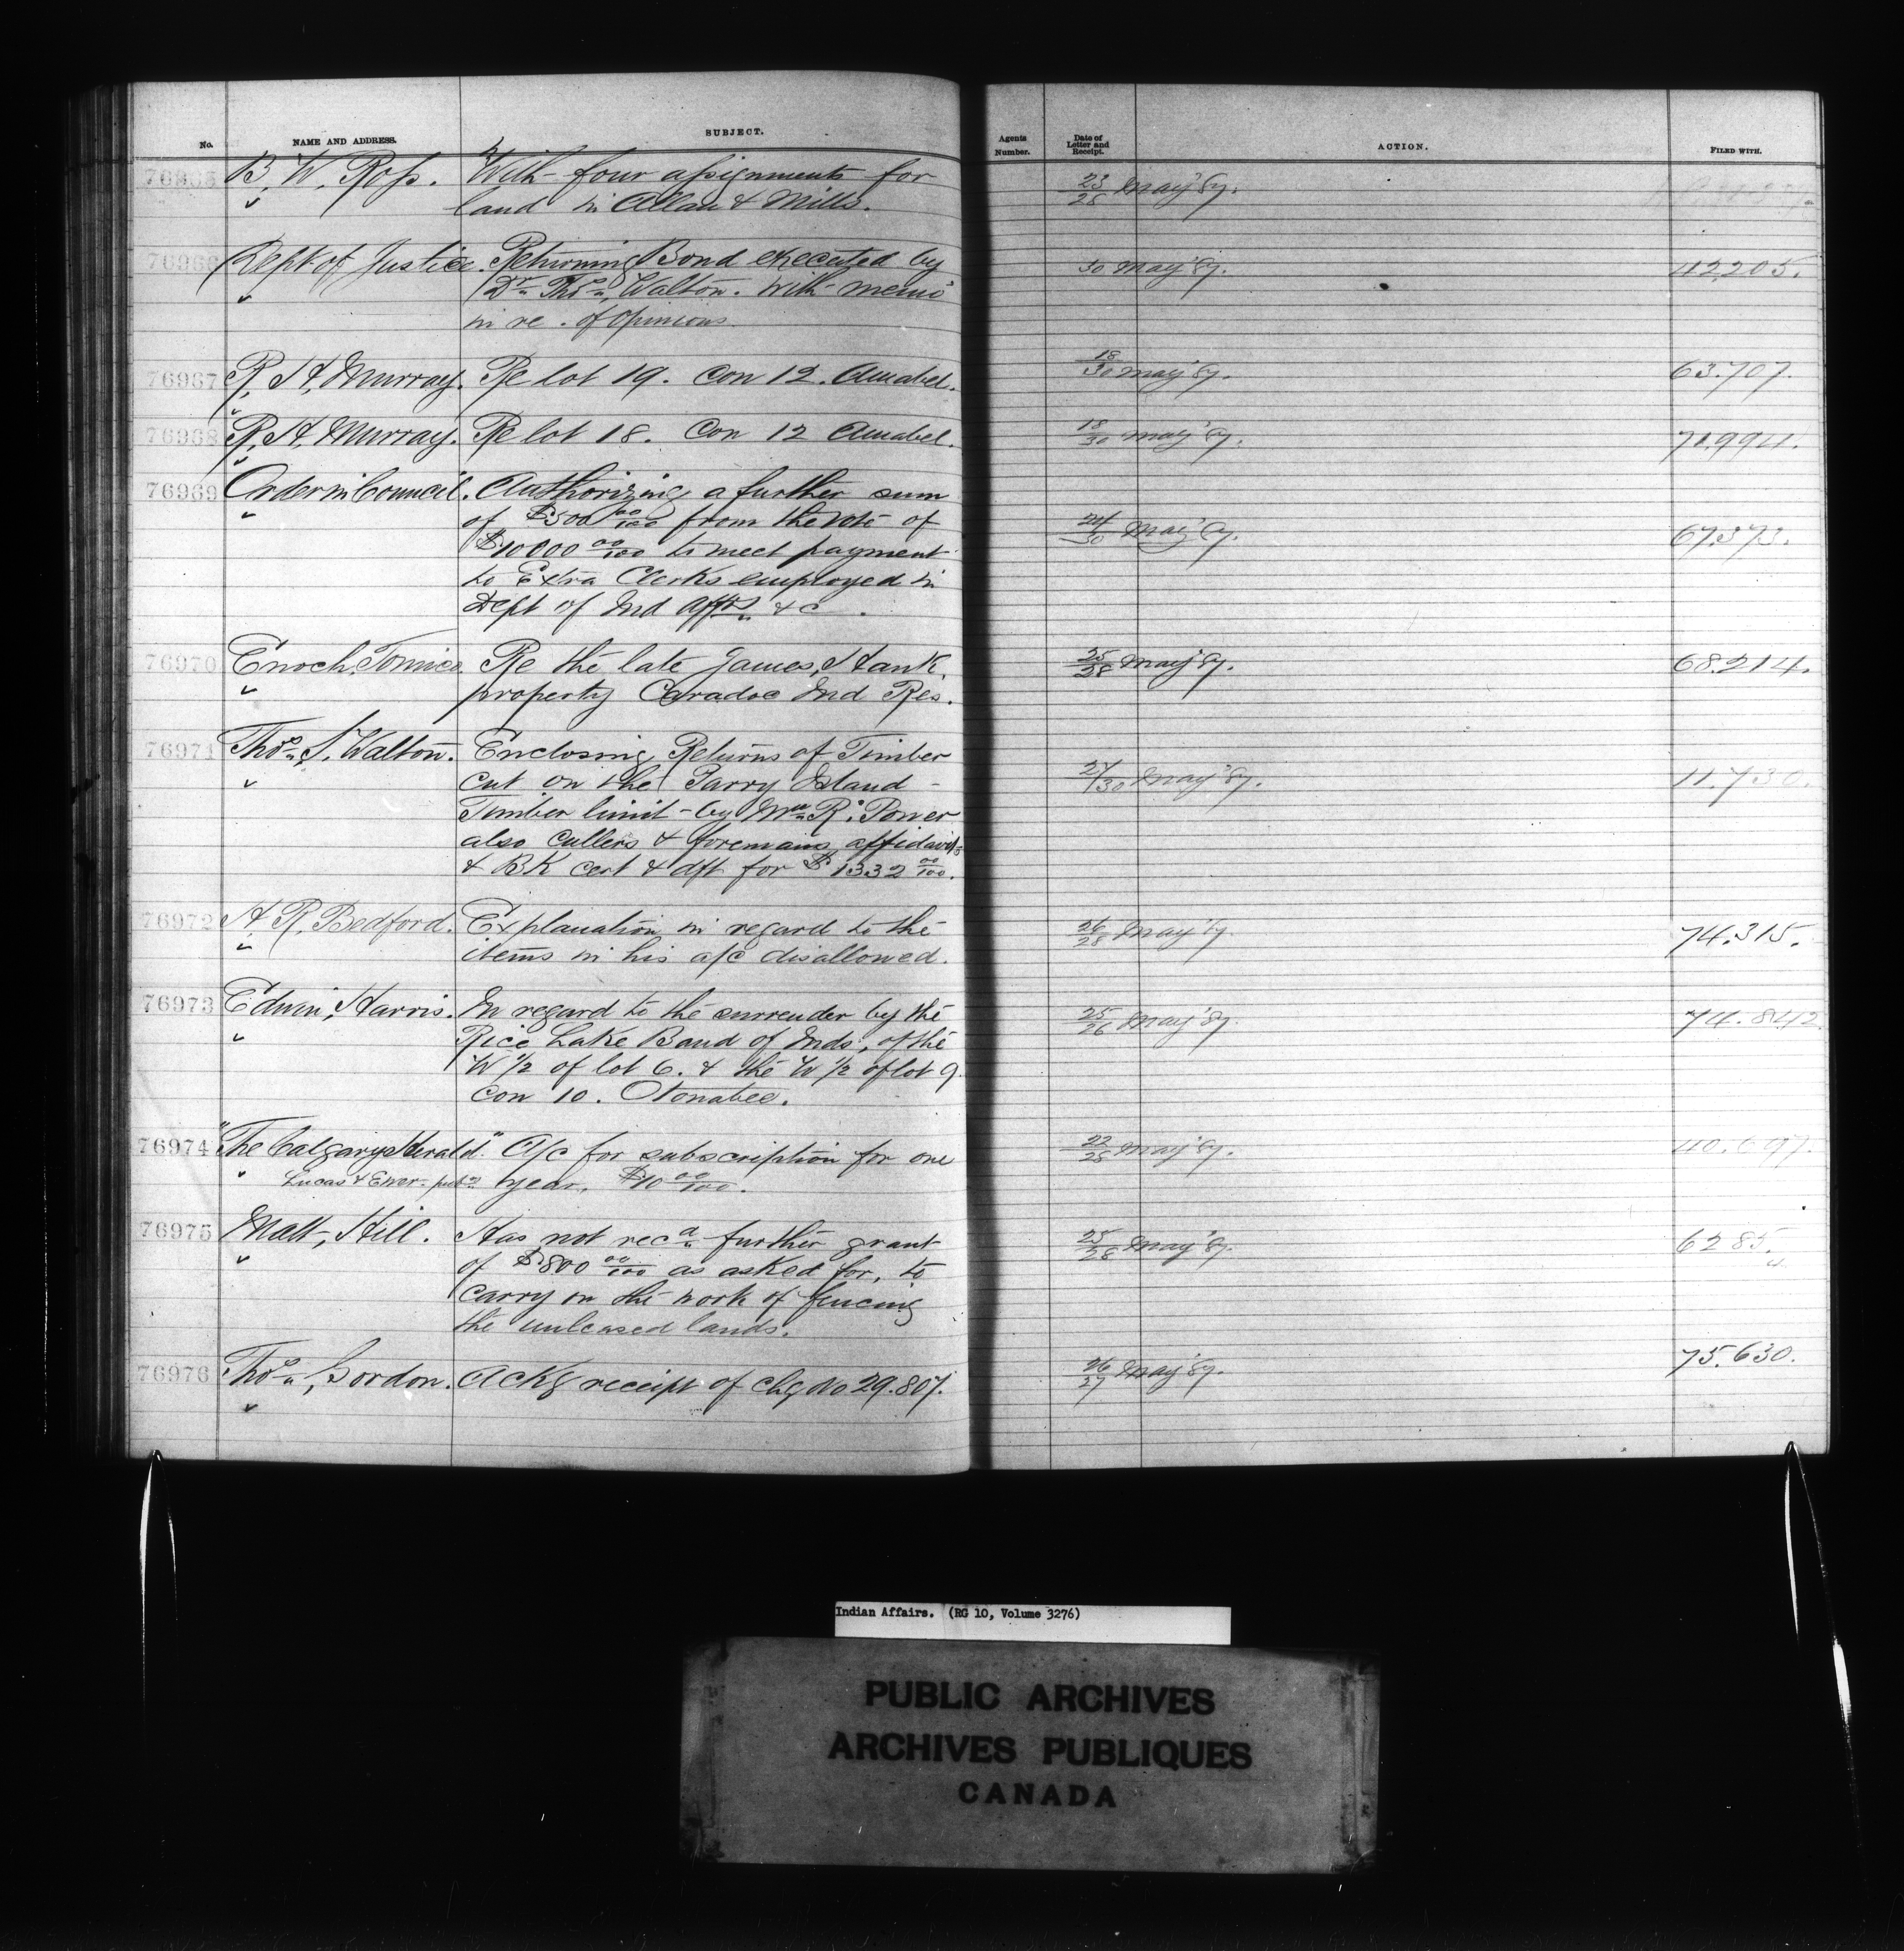 No. NAME AND ADDRESS. SUBJECT. Agents Number. Date of Letter and Receipt. ACTION. FILED WITH.
76965 B. W. Ross. With four assignments for 23/28 May '87.
land in Allan & Mills.
76966 Dept of Justice. Returning Bond executed by 30 May '87. 42,205.
Dr. Thos. Walton. With memo
in re. of opinions.
76967 R. H. Murray. Re lot 19. Con 12. Amabel. 18/30 May '87. 63.707.
76968 R. H. Murray. Re lot 18. Con 12 Amabel. 18/30 May '87. 71.994.
76969 Order in Council. Authorizing a further sum
of $500 00/100 from the vote of 24/30 May '87. 67.373.
$10000 00/100 to meet payment
to Extra Clerks employed in
Dept of Ind Affrs &c.
76970 Enoch, Tomico Re the late James, Hank 25/28 May '87. 68.214.
property Caradoc Ind Res.
76971 Thos. S. Walton. Enclosing Returns of Timber
cut on the Parry Island - 27/30 May '87. 11.730.
Timber limit - by Wm R. Power
also cullers & foremans affidavits
& BK cert & dft for $1332 00/100.
76972 A. R. Bedford. Explanation in regard to the 26/28 May '87. 74.315.
items in his a/c disallowed.
76973 Edwin, Harris. In regard to the surrender by the 25/26 May '87. 74.842
Rice Lake Band of Inds, of the
W 1/2 of lot 6. & the W 1/2 of lot 9.
Con 10. Otonabee.
76974 "The Calgary Herald." A/c for subscription for one 22/28 May '87. 40.697.
Lucas & Ewer - pubrs year. $10 00/100.
76975 Matt, Hill. Has not recd further grant 25/28 May '87. 6285.
of $800 00/100 as asked for, to
carry on the work of fencing
the unleased lands.
76976 Thos. Gordon. Ackg receipt of chq No 29.807. 26/27 May '87. 75.630.
Indian Affairs. (RG 10, Volume 3276)
PUBLIC ARCHIVES
ARCHIVES PUBLIQUES
CANADA